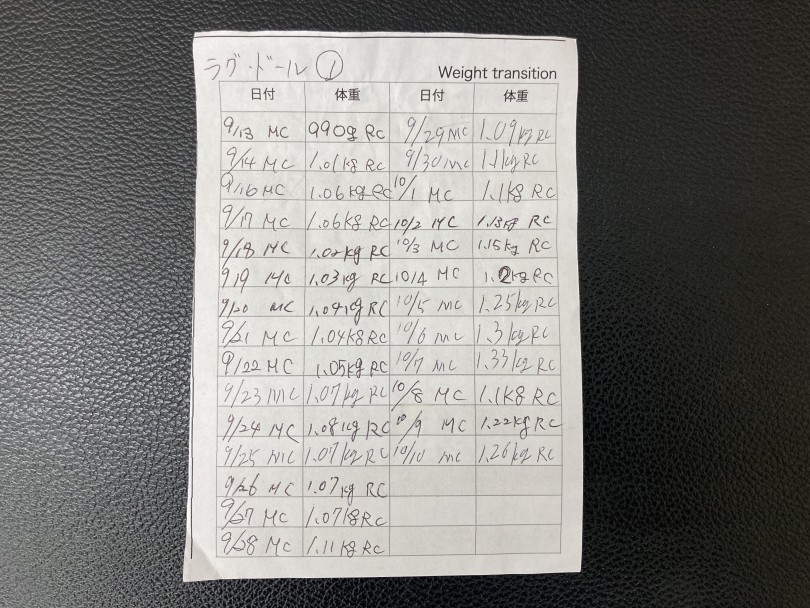 ラグ・ドール ①
Weight transition
日付 体重 日付 体重
9/13 MC 990g RC 9/29 MC 1.09kg RC
9/14 MC 1.01kg RC 9/30 MC 1.1kg RC
9/16 MC 1.06kg RC 10/1 MC 1.1kg RC
9/17 MC 1.06kg RC 10/2 MC 1.13kg RC
9/18 MC RC 10/3 MC 1.15kg RC
9/19 MC 1.03kg RC 10/4 MC 1.2kg RC
9/20 MC 1.04kg RC 10/5 MC 1.25kg RC
9/21 MC 1.04kg RC 10/6 MC 1.31kg RC
9/22 MC 1.05kg RC 10/7 MC 1.33kg RC
9/23 MC 1.07kg RC 10/8 MC 1.1kg RC
9/24 MC 1.08kg RC 10/9 MC 1.22kg RC
9/25 MC 1.07kg RC 10/10 MC 1.26kg RC
9/26 MC 1.07kg RC
9/27 MC 1.07kg RC
9/28 MC 1.11kg RC